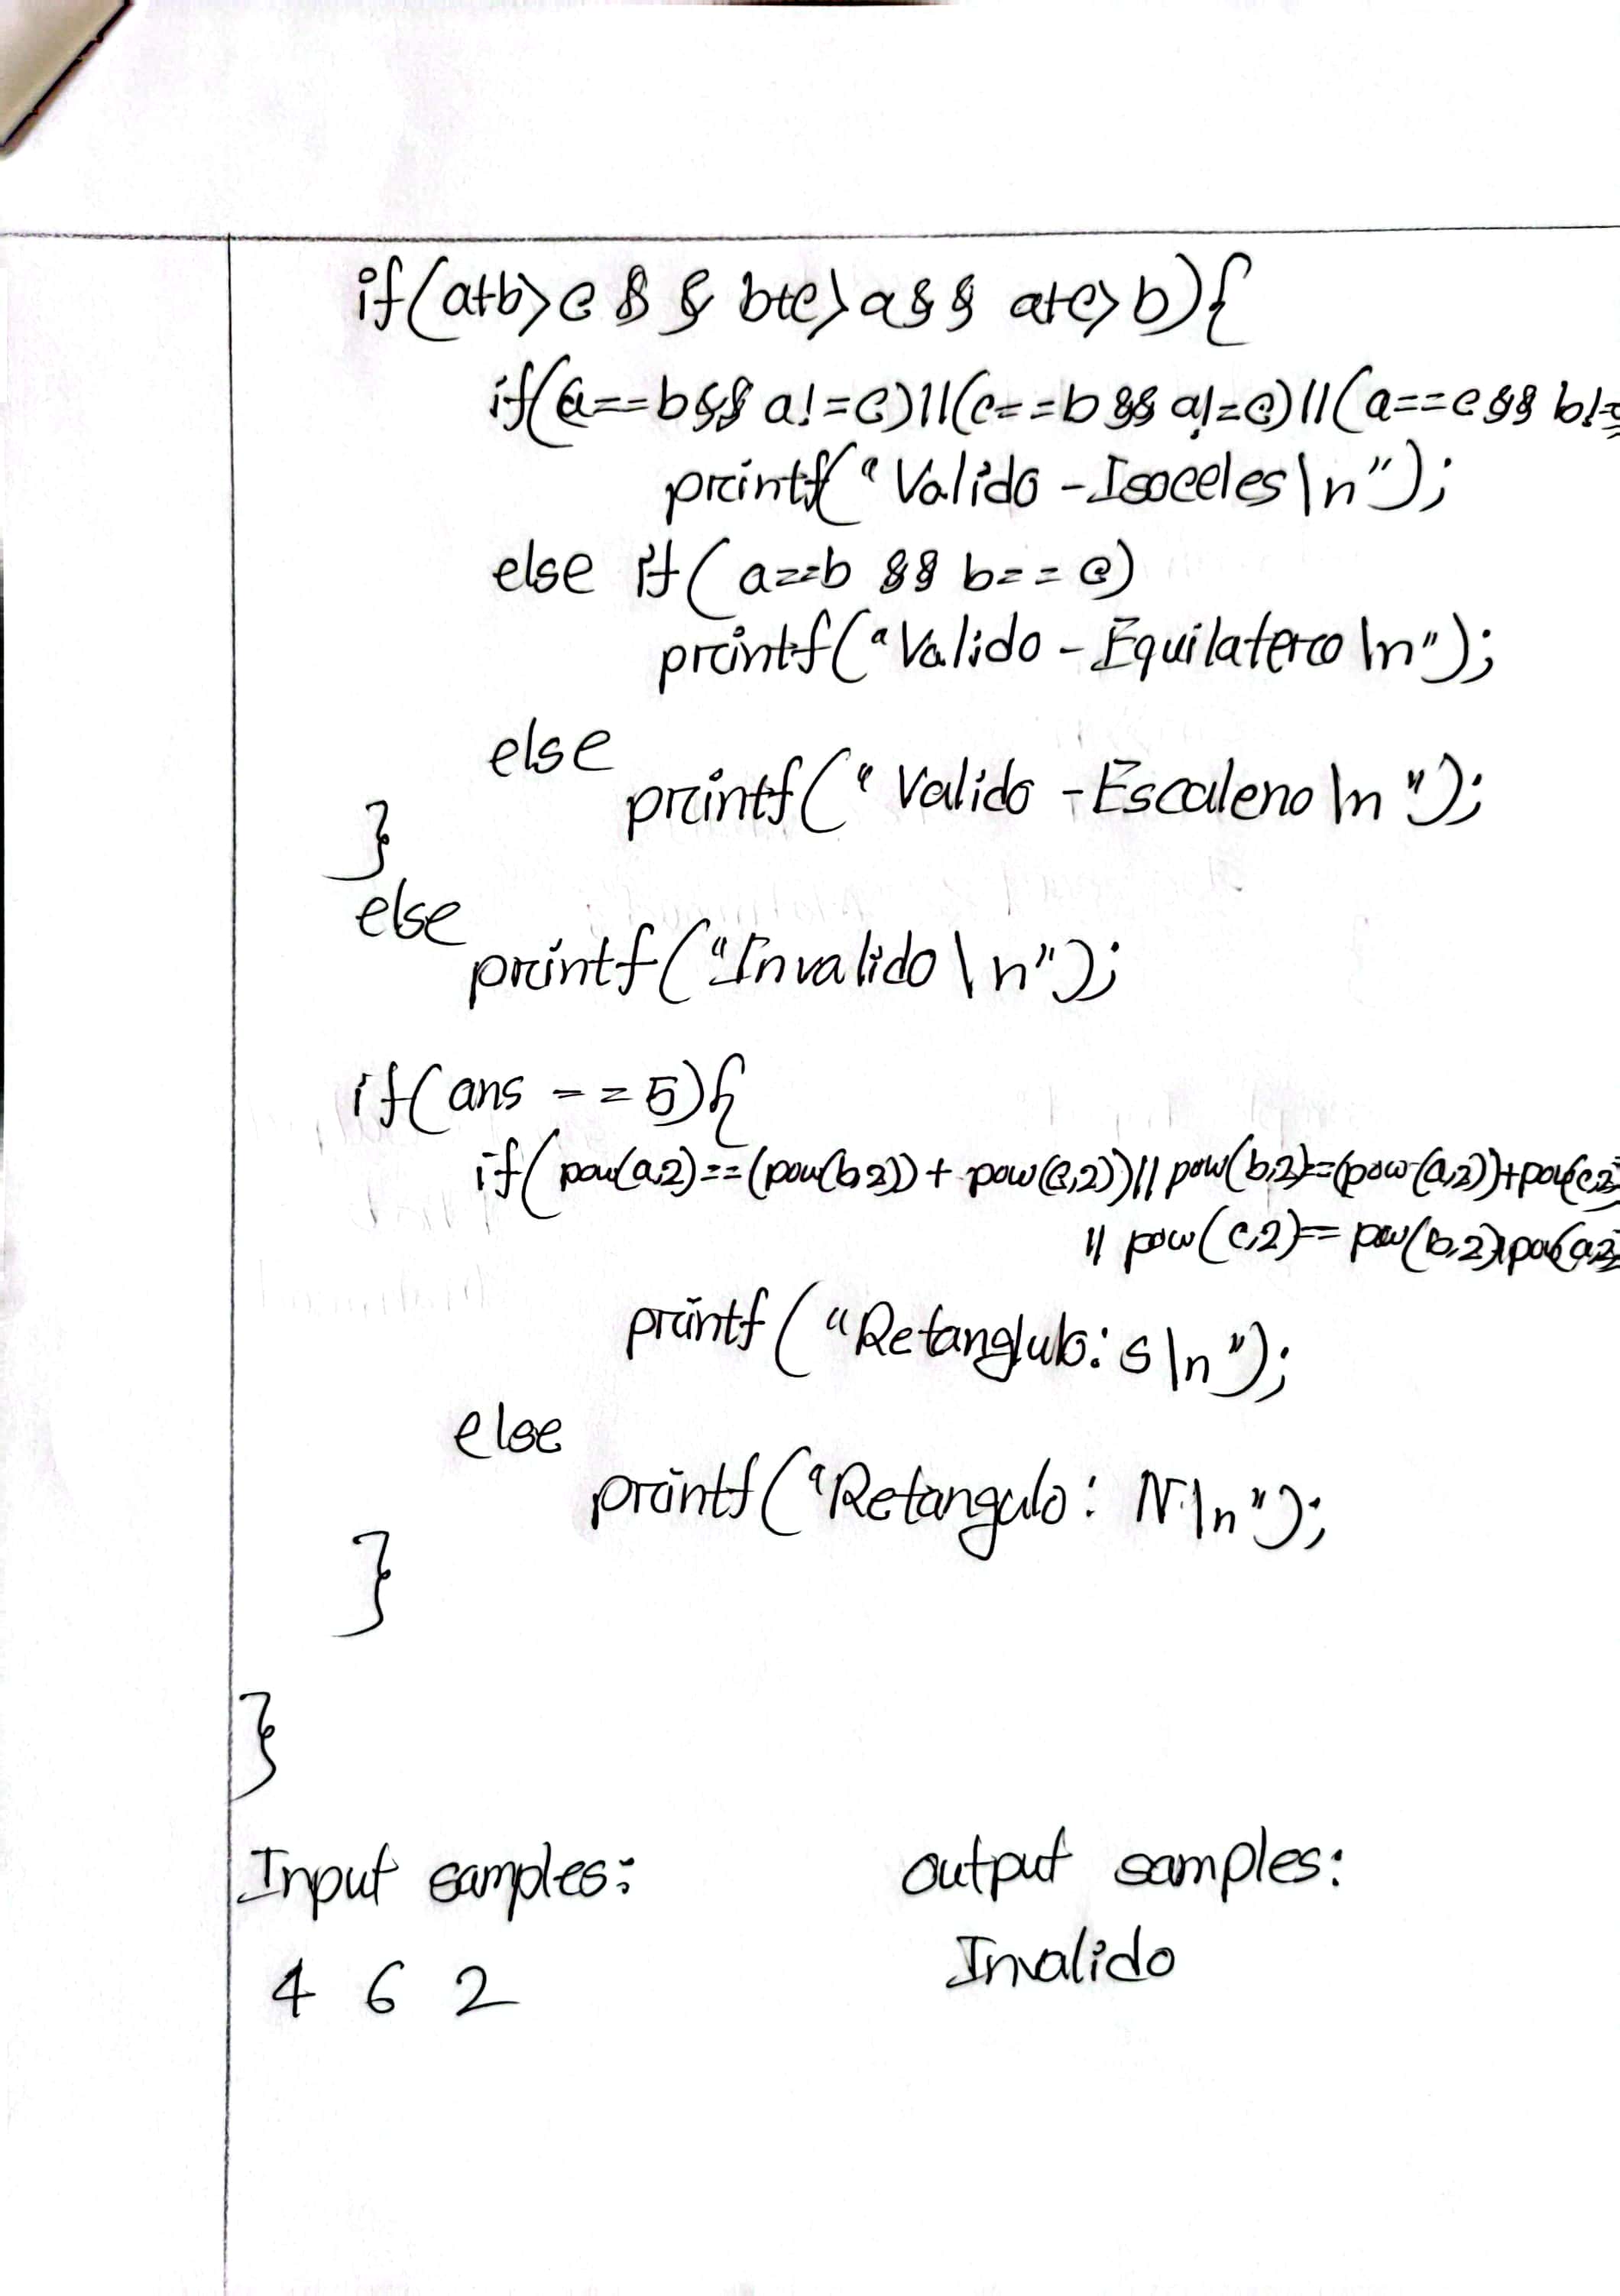 if(a+b>c && b+c>a && a+c>b){
if(a==b&& a!=c)||(c==b && a!=c)||(a==c && b!=
printf("Valido -Isoceles\n");
else if(a==b && b==c)
printf("Valido -Equilatero\n");
else
printf("Valido -Escaleno\n");
}
else
printf("Invalido\n");
if(ans ==5){
if(pow(a,2)==(pow(b,2))+pow(c,2))|| pow(b,2)==(pow(a,2))+pow(c,2
|| pow(c,2)== pow(b,2)+pow(a,2
printf("Retanglulo: S\n");
else
printf("Retangulo: N\n");
}
}
Input samples: output samples:
4 6 2 Invalido